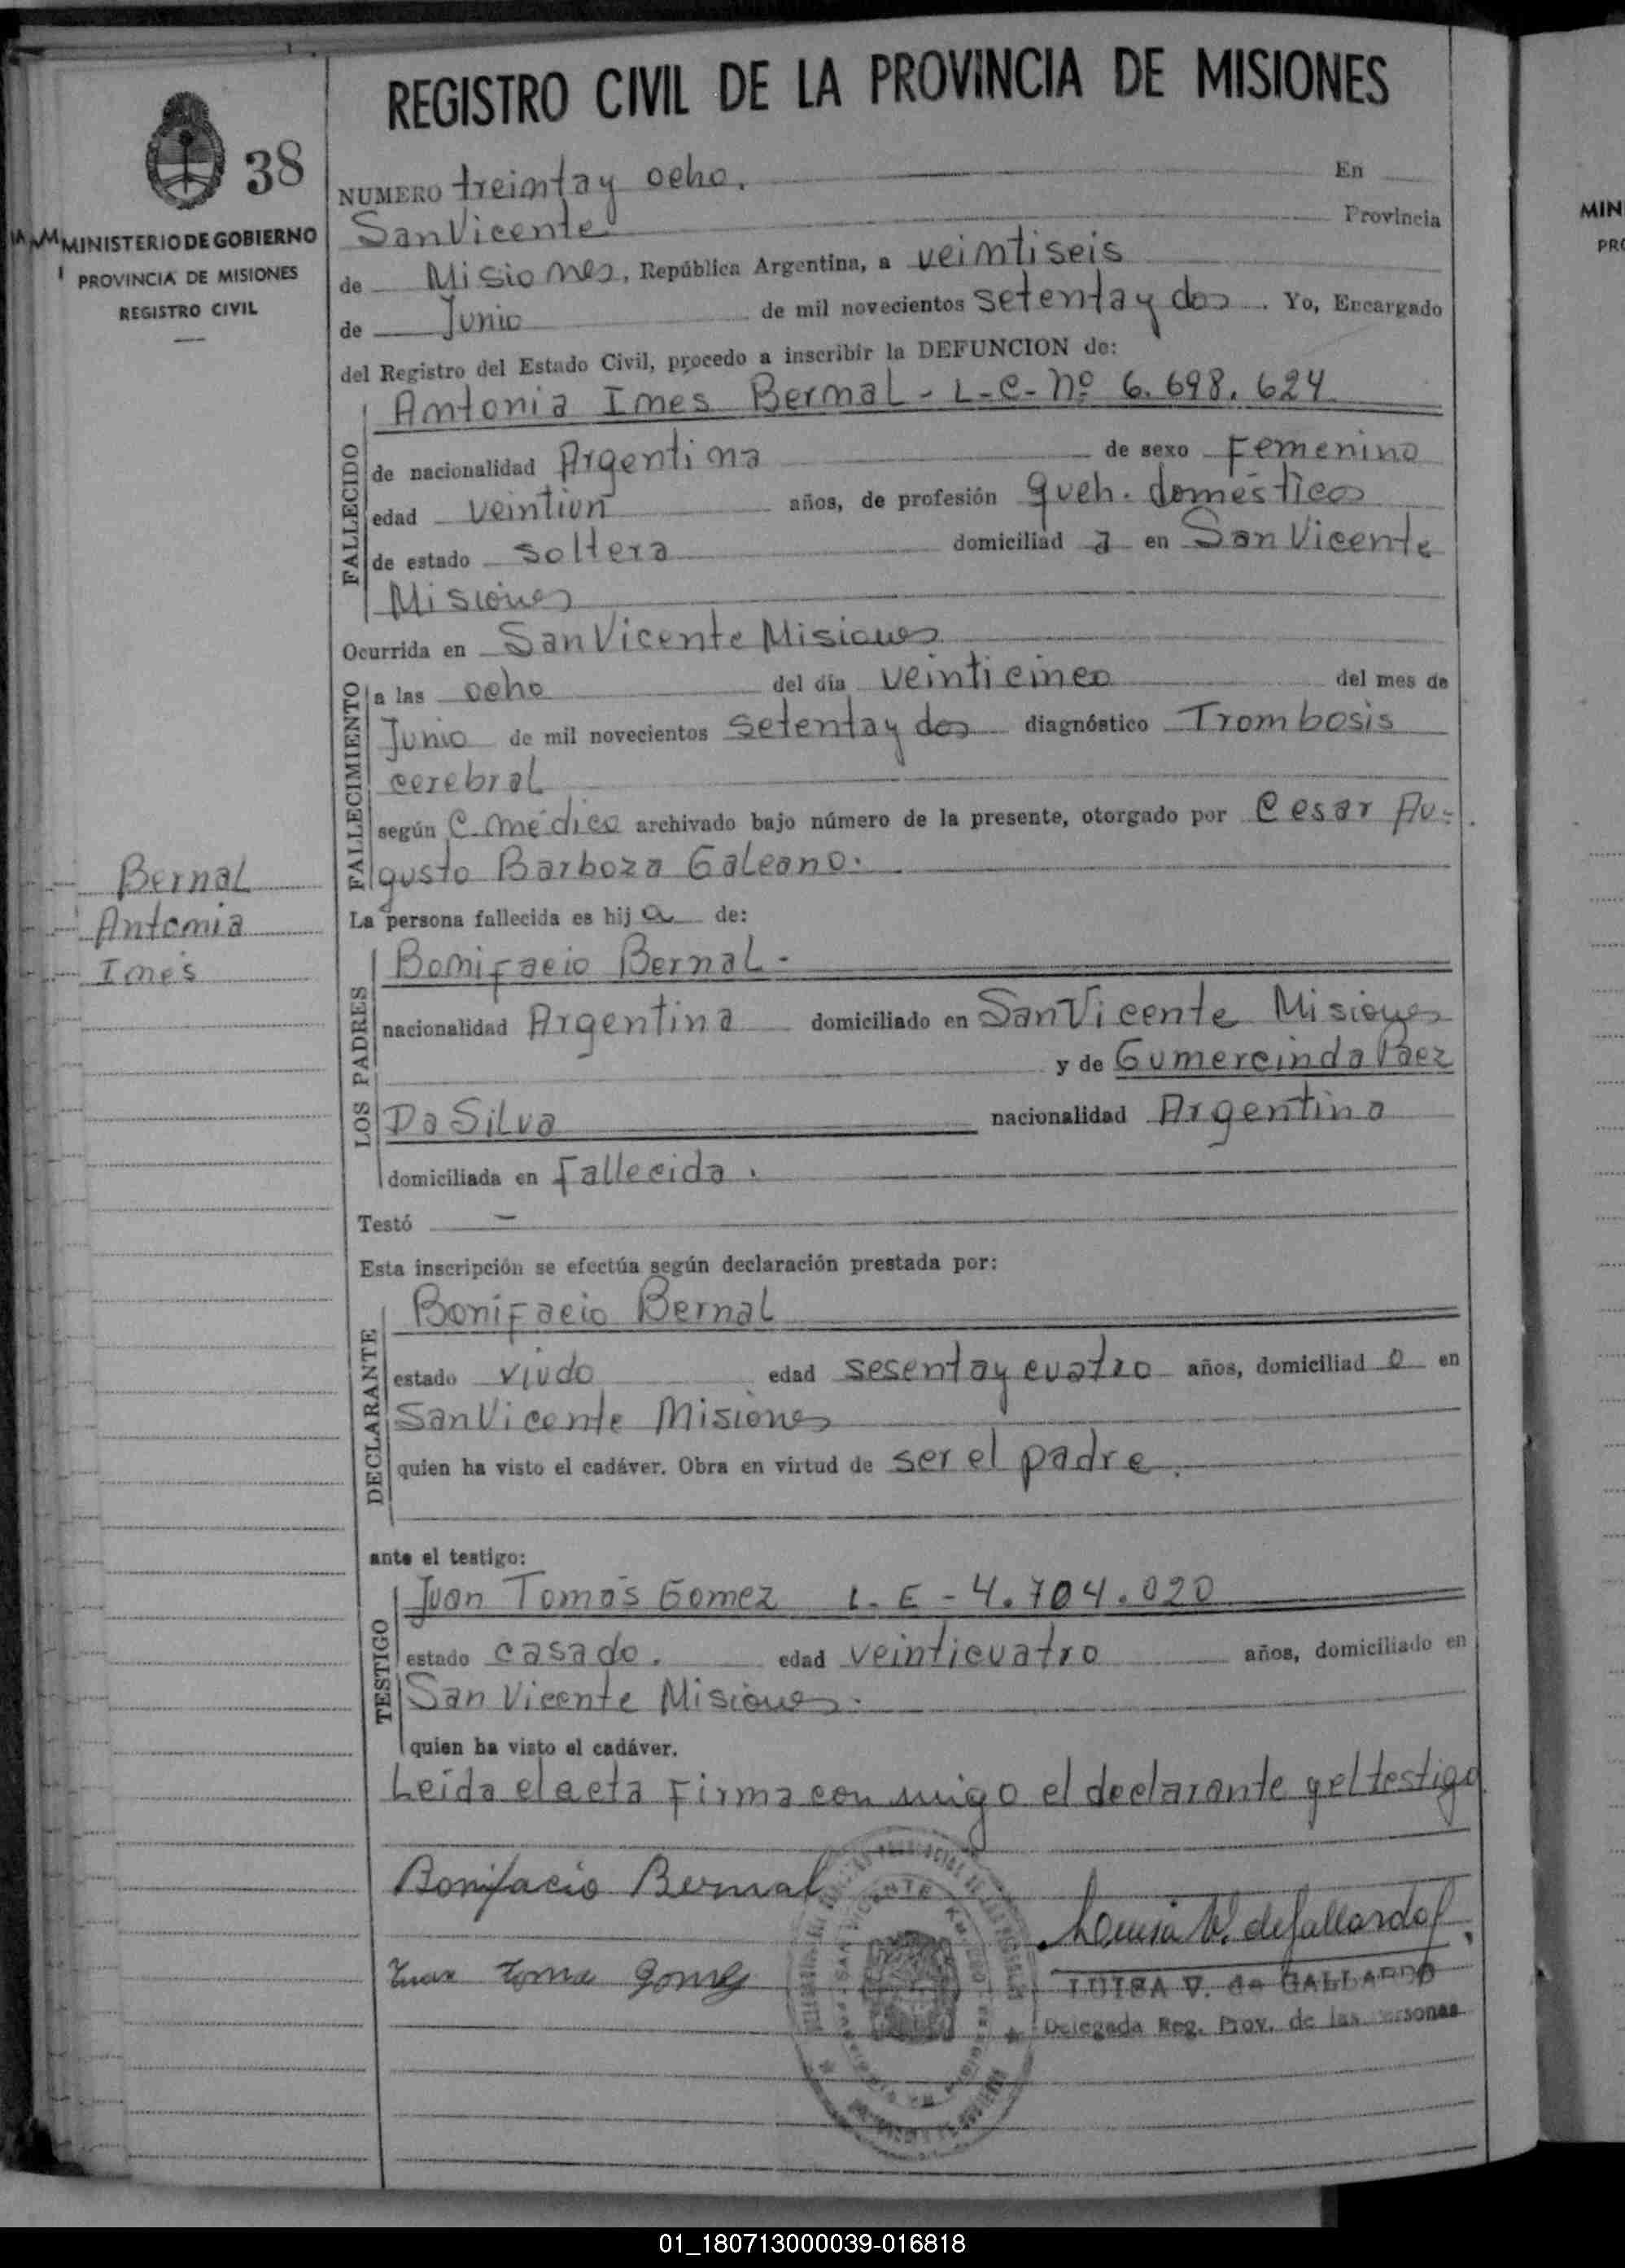 REGISTRO CIVIL DE LA PROVINCIA DE MISIONES
38
MINISTERIO DE GOBIERNO
PROVINCIA DE MISIONES
REGISTRO CIVIL
NUMERO treinta y ocho. En
San Vicente Provincia
de Misiones, República Argentina, a veintiseis
de Junio de mil novecientos setenta y dos. Yo, Encargado
del Registro del Estado Civil, procedo a inscribir la DEFUNCION de:
FALLECIDO
Antonia Inés Bernal - L-C- Nº 6.698.624
de nacionalidad Argentina de sexo Femenino
edad veintiun años, de profesión queh. domésticos
de estado soltera domiciliad a en San Vicente
Misiones
Ocurrida en San Vicente Misiones
FALLECIMIENTO
a las ocho del día veinticinco del mes de
Junio de mil novecientos setenta y dos diagnóstico Trombosis
cerebral
según C. médico archivado bajo número de la presente, otorgado por Cesar Au-
gusto Barboza Galeano.
Bernal
Antonia
Inés
La persona fallecida es hij a de:
LOS PADRES
Bonifacio Bernal -
nacionalidad Argentina domiciliado en San Vicente Misiones
y de Gumercinda Paez
Da Silva nacionalidad Argentina
domiciliada en Fallecida.
Testó -
Esta inscripción se efectúa según declaración prestada por:
DECLARANTE
Bonifacio Bernal
estado viudo edad sesenta y cuatro años, domiciliad o en
San Vicente Misiones
quien ha visto el cadáver. Obra en virtud de ser el padre.
ante el testigo:
TESTIGO
Juan Tomás Gomez L. E - 4.704.020
estado casado. edad veinticuatro años, domiciliado en
San Vicente Misiones.
quien ha visto el cadáver.
Leída el acta Firma con migo el declarante y el testigo
Bonifacio Bernal
Luisa V. de Gallardo
Juan toma gomez
LUISA V. de GALLARDO
Delegada Reg. Prov. de las Personas
01_180713000039-016818